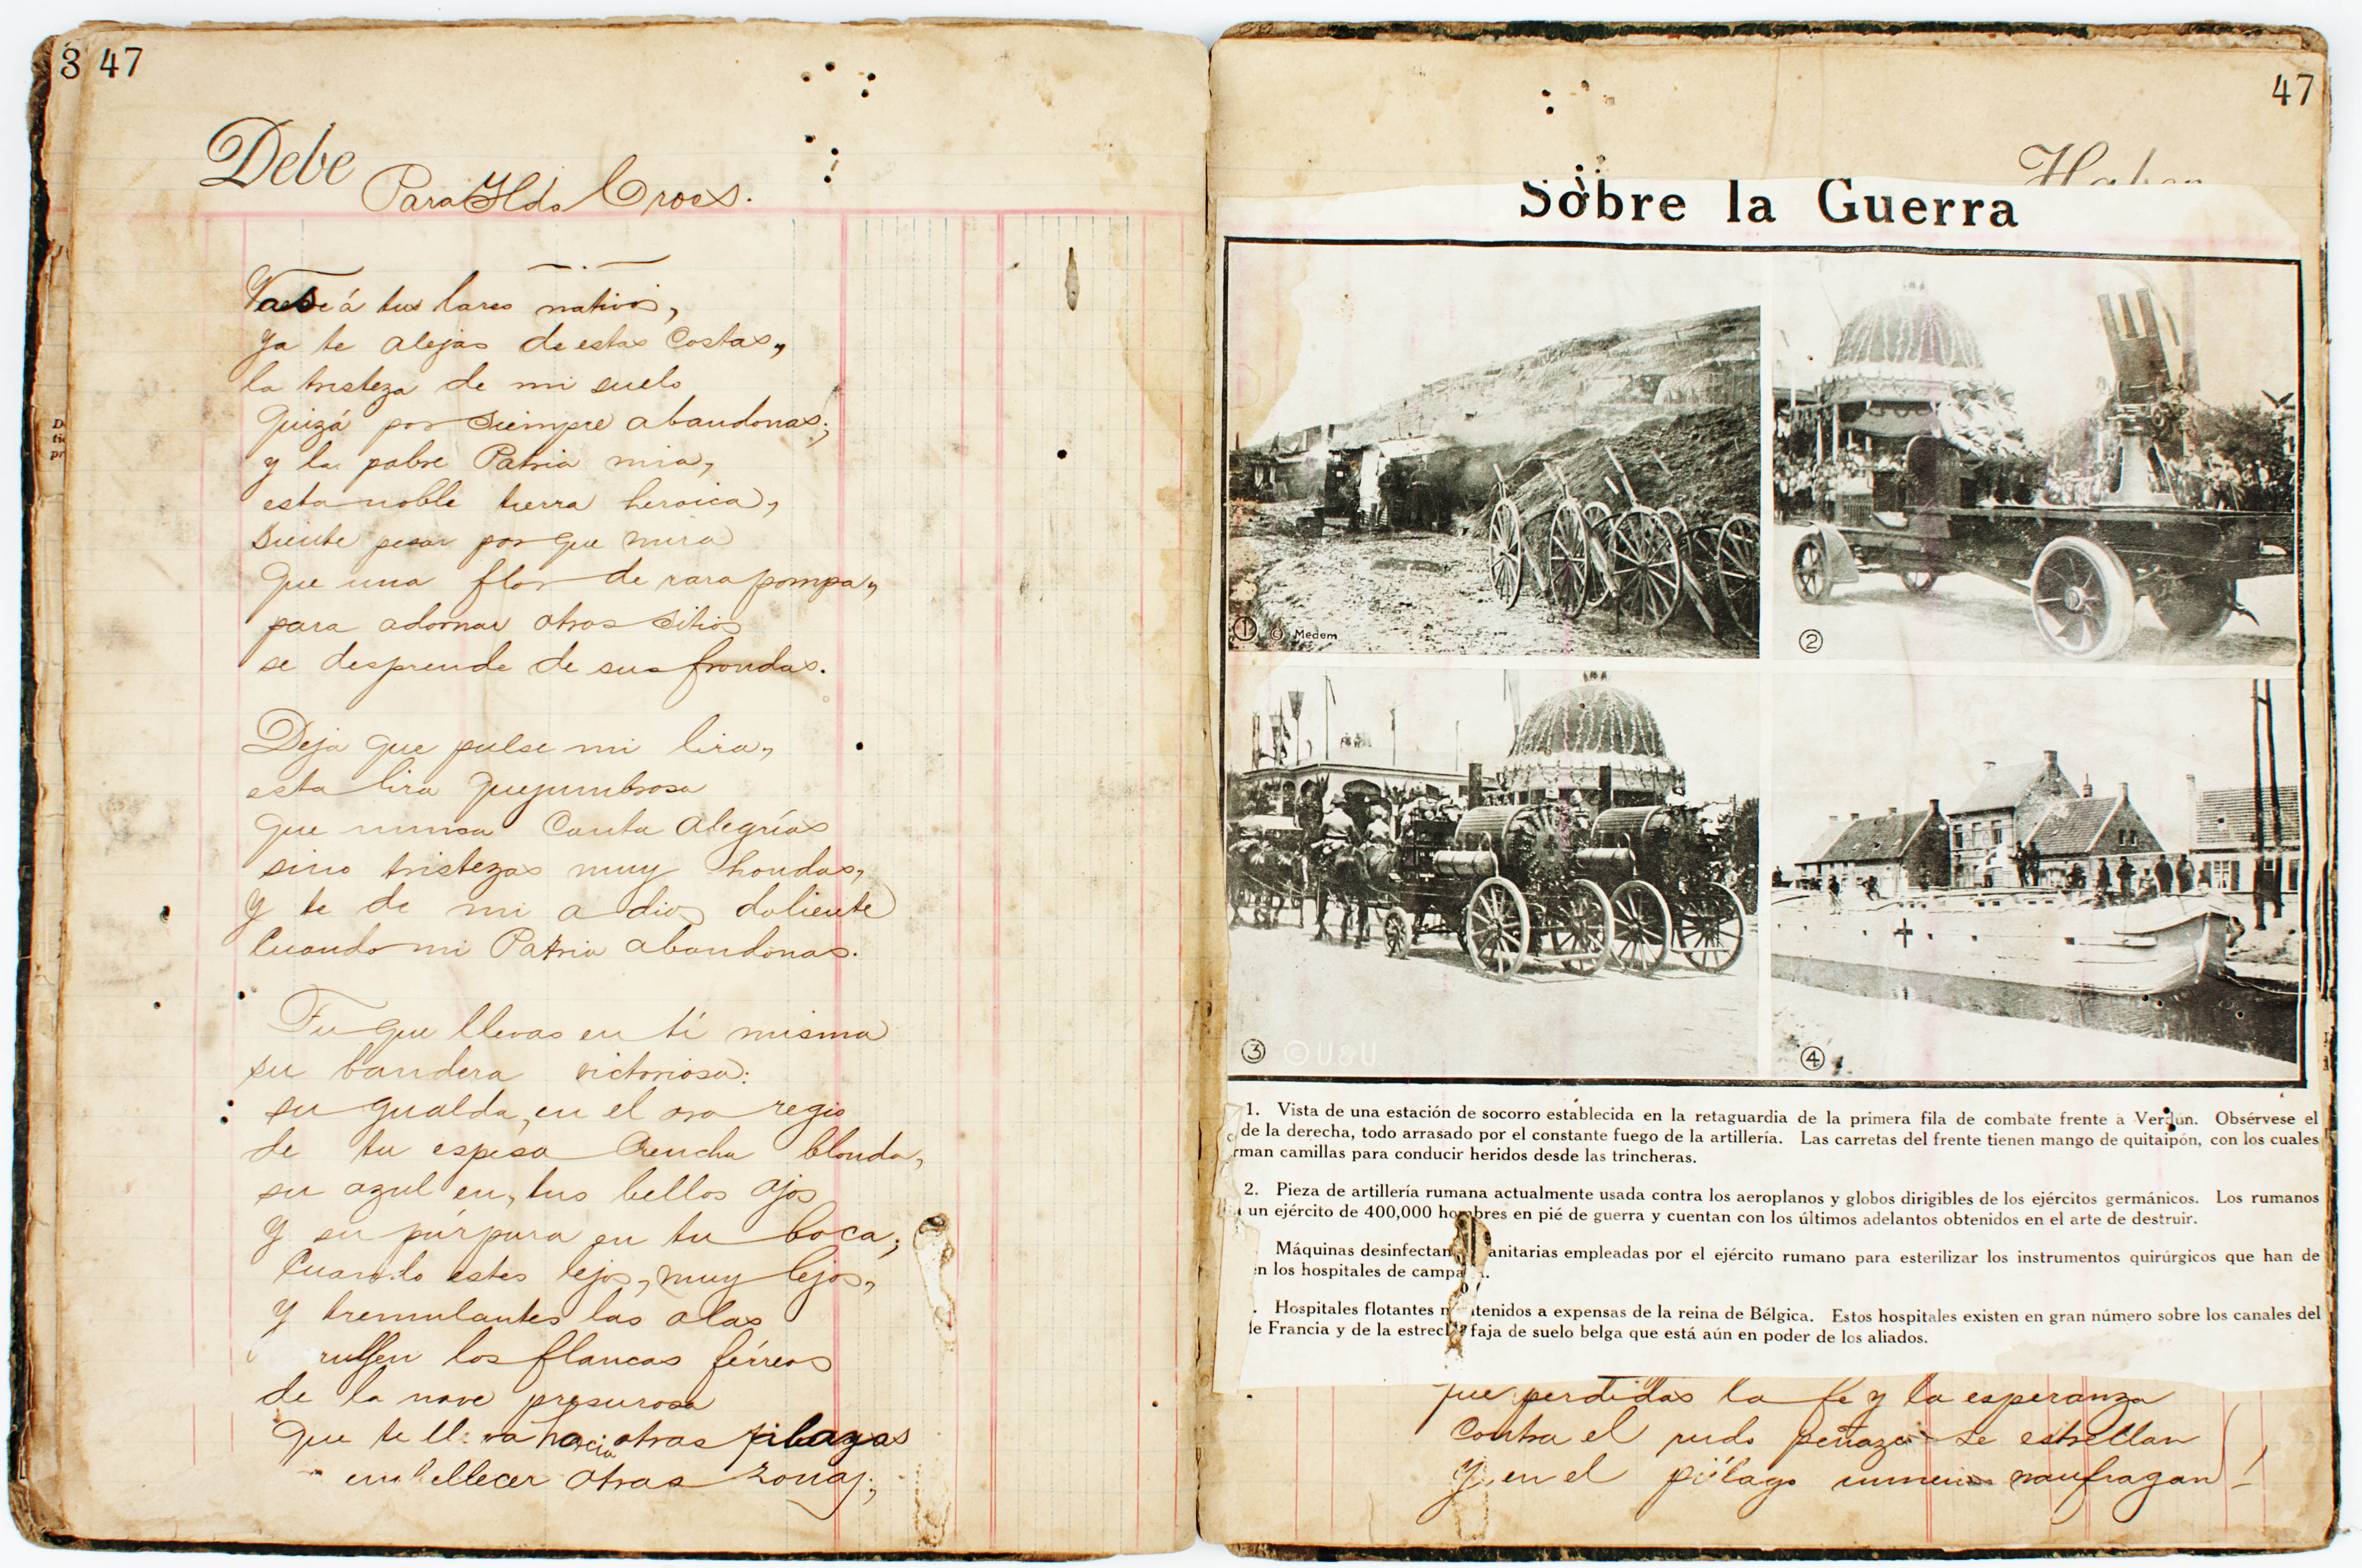 3 47
Debe
Para Ilda Croes.
Vase á tus lares nativos,
ya te alejas de estas Costas,
la tristeza de mi suelo
quizá por siempre abandonas;
y la pobre Patria mia,
esta noble tierra heroica,
siente pesar porque mira
que una flor de rara pompa,
para adornar otros sitios
se desprende de sus frondas.
Deja que pulse mi lira,
esta lira quejumbrosa
que nunca Canta alegrías
sino tristezas muy hondas,
y te de mi a dios doliente
Cuando mi Patria abandonas.
Tu que llevas en tí misma
su bandera victoriosa:
su gualda, en el oro regio
de tu espesa Crencha blonda,
su azul en, tus bellos ojos
y su púrpura en tu boca;
Cuando estes lejos, muy lejos,
y tremulantes las olas
los flancos férreos
de la nave presurosa
que te ll va hacia otras playas
em ellecer otras zonas;
47
Haber
Sobre la Guerra
1 © Medem
2
3 © U & U
4
1. Vista de una estación de socorro establecida en la retaguardia de la primera fila de combate frente a Verdun. Obsérvese el
de la derecha, todo arrasado por el constante fuego de la artillería. Las carretas del frente tienen mango de quitaipón, con los cuales
rman camillas para conducir heridos desde las trincheras.
2. Pieza de artillería rumana actualmente usada contra los aeroplanos y globos dirigibles de los ejércitos germánicos. Los rumanos
un ejército de 400,000 hombres en pié de guerra y cuentan con los últimos adelantos obtenidos en el arte de destruir.
Máquinas desinfectan anitarias empleadas por el ejército rumano para esterilizar los instrumentos quirúrgicos que han de
en los hospitales de campa
. Hospitales flotantes m tenidos a expensas de la reina de Bélgica. Estos hospitales existen en gran número sobre los canales del
de Francia y de la estrecha faja de suelo belga que está aún en poder de los aliados.
que perdidas la fe y la esperanza
Contra el rudo peñazco se estrellan
y en el piélago inmenso naufragan!